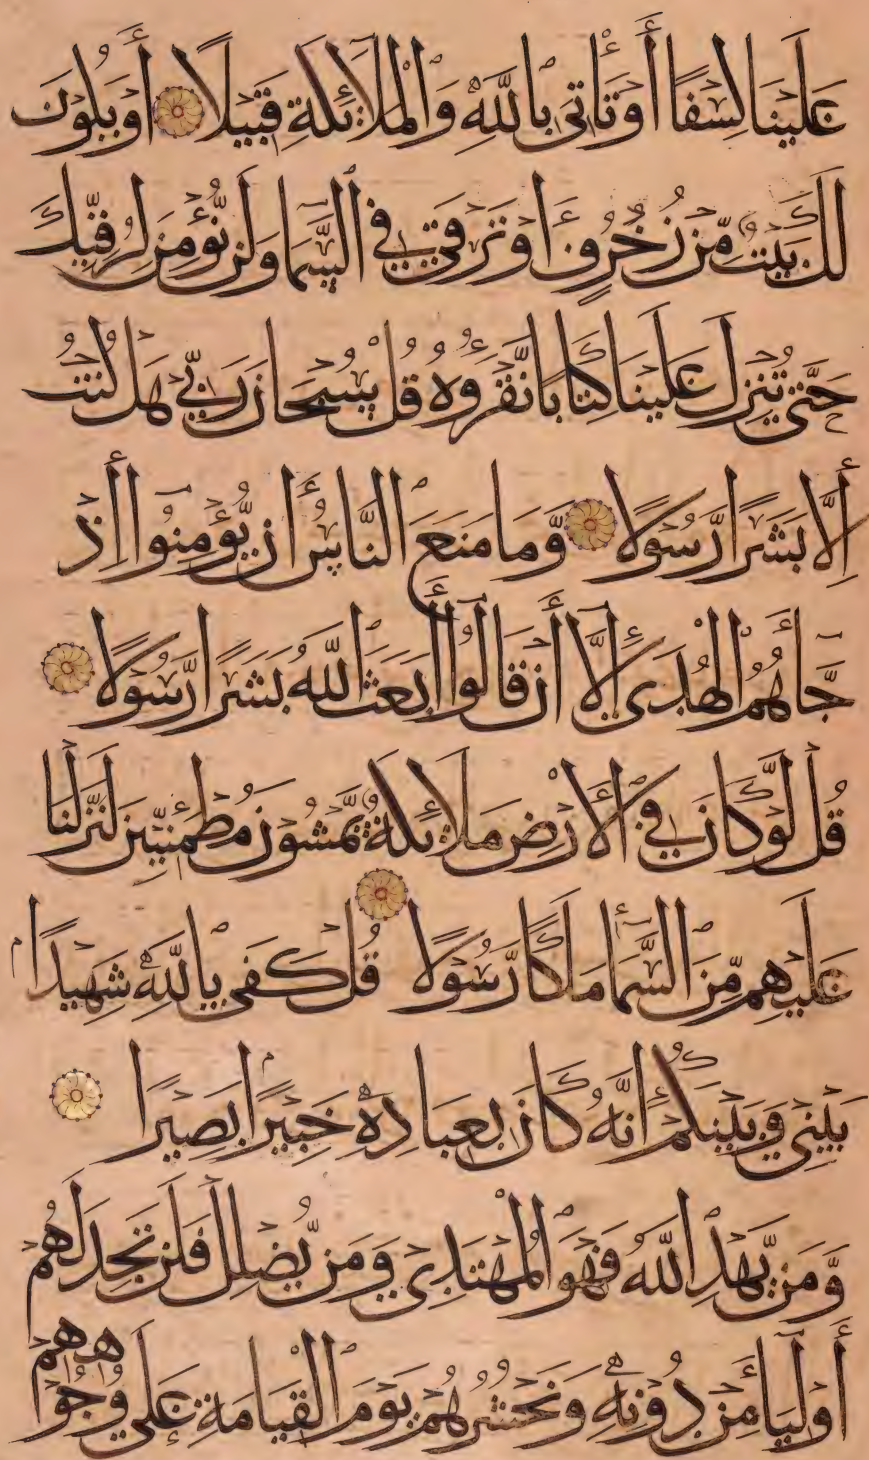 عَلَيْنَا كِسَفًا أَوْ تَأْتِيَ بِاللَّهِ وَالْمَلَائِكَةِ قَبِيلًا أَوْ يَكُونَ
لَكَ بَيْتٌ مِّنْ زُخْرُفٍ أَوْ تَرْقَىٰ فِي السَّمَا وَلَنْ نُّؤْمِنَ لِرُقِيِّكَ
حَتَّىٰ تُنَزِّلَ عَلَيْنَا كِتَابًا نَّقْرَؤُهُ قُلْ سُبْحَانَ رَبِّي هَلْ كُنْتُ
إِلَّا بَشَرًا رَّسُولًا وَّمَا مَنَعَ النَّاسَ أَنْ يُّؤْمِنُوا إِذْ
جَاءَهُمُ الْهُدَىٰ إِلَّا أَنْ قَالُوا أَبَعَثَ اللَّهُ بَشَرًا رَّسُولًا
قُلْ لَّوْ كَانَ فِي الْأَرْضِ مَلَائِكَةٌ يَّمْشُونَ مُطْمَئِنِّينَ لَنَزَّلْنَا
عَلَيْهِمْ مِّنَ السَّمَاءِ مَلَكًا رَّسُولًا قُلْ كَفَىٰ بِاللَّهِ شَهِيدًا
بَيْنِي وَبَيْنَكُمْ إِنَّهُ كَانَ بِعِبَادِهِ خَبِيرًا بَصِيرًا
وَّمَنْ يَّهْدِ اللَّهُ فَهُوَ الْمُهْتَدِي وَمَنْ يُّضْلِلْ فَلَنْ تَجِدَ لَهُمْ
أَوْلِيَاءَ مِنْ دُونِهِ وَنَحْشُرُهُمْ يَوْمَ الْقِيَامَةِ عَلَىٰ وُجُوهِهِمْ